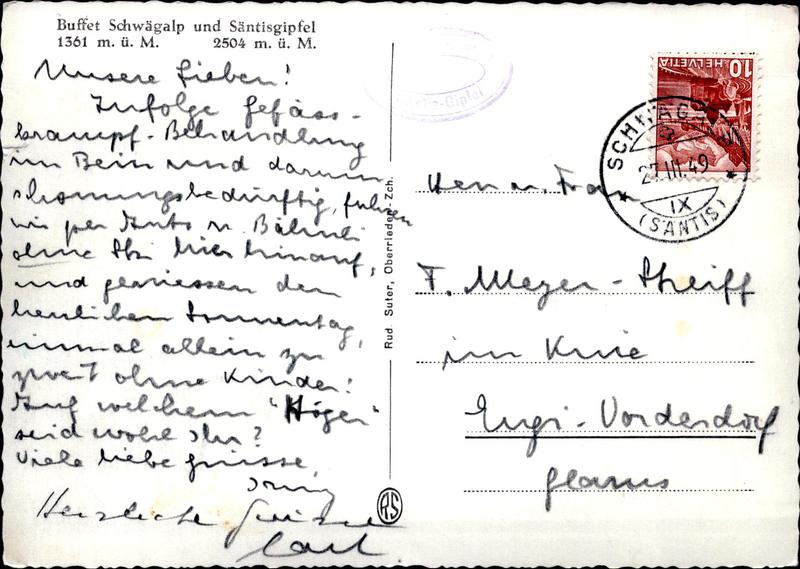 Buffet Schwägalp und Säntisgipfel
1361 m. ü. M. 2504 m. ü. M.
Unsere Lieben!
Infolge Gefäss-
krampf-Behandlung
im Bein und darum
schonungsbedürftig, fuhren
wir per Auto u. Bähnli
ohne Ski hier hinauf,
und geniessen den
herrlichen Sonnentag,
einmal allein zu
zweit ohne Kinder!
Auf welchem "Höger"
seid wohl Ihr?
Viele liebe Grüsse,
Herzliche Grüsse
Rud. Suter, Oberrieden-Zch.
RS
-Gipfel
HELVETIA
10
SCHWÄG
27.III.49
IX
(SÄNTIS)
Herr u. Frau
F. Meyer-Streiff
im Knie
Engi-Vorderdorf
Glarus